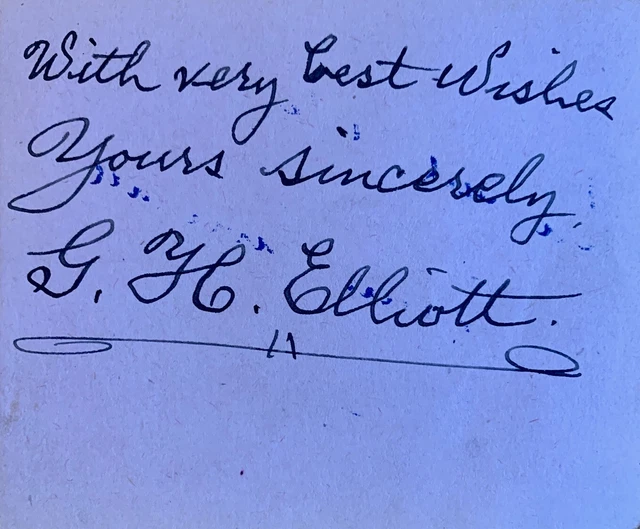 With very best Wishes
Yours sincerely,
G. H. Elliott.